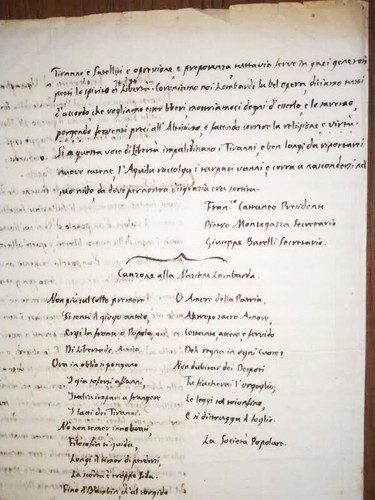 Tiranno, e Satelliti e opressione, e prepotenza, tuttavia ferve in quasi generosi
petti lo spirito di Libertà. Coroniamo noi Lombardi la bel opera diciamo tutti
d'accordo che vogliamo esser liberi mostriamoci degni d'esserlo, e lo saremo,
porgendo ferventi preci all'Altissimo e facendo correre la religione, e virtù.
Sì a questa voce di Libertà impallidiscano i Tiranni, e ben longi da riportarci
nuove catene, l'Aquila raccolga i tarpati vanni, e corra a nascondersi nel
suo nido, da dove per nostra disgrazia era sortita.
Fran.co Cattaneo Presidente
Pietro Montegazza Secretario
Giuseppe Barelli Secretario.
Canzone alla Nazione Lombarda.
Non più sul collo premere
Si senti il giogo
Ergi la fronte o Popolo
Di Libertade Amico.
Ora in oblio si pongano
I già sofferti affanni,
Italia impari a frangere
I lacci dei Tiranni.
No' non temer
Filosofia ti guida,
Lungi il timor di perderti,
La scorta è troppo fida.
Fino il Bambin ch'al
O Amore della Patria,
Almo sacro Amore,
Costante acceso, e fervido
Deh regna in ogni Cuore!
Non dubitar dei Despoti
Tu fiaccherai l'orgoglio,
Le leggi sol trionfino,
E si distrugga il Soglio.
La Società Popolare.